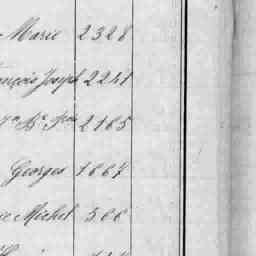 Marie 2328
ançois Joseph 2241
2165
Georges 1667
ie Michel 566